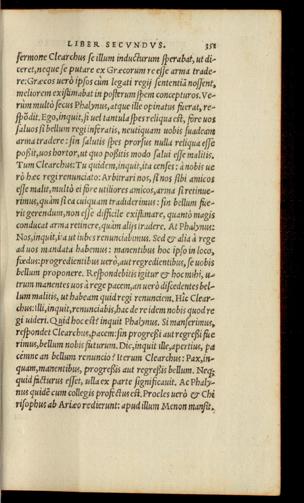 LIBER SECVNDVS. 358
sermone Clearchus se illum inducturum sperabat, ut di-
ceret, neque se putare ex Græcorum re esse arma trade-
re: Græcos uerò ipsos cùm legati regij sententiã nossent,
meliorem existimabat in posterum spem concepturos. Ve-
rùm multò secus Phalynus, atque ille opinatus fuerat, re-
spõdit. Ego, inquit, si uel tantula spes reliqua est, fore uos
saluos si bellum regi inferatis, neutiquam uobis suadeam
arma tradere: sin salutis spes prorsus nulla reliqua esse
possit, uos hortor, ut quo possitis modo salui esse malitis.
Tum Clearchus: Tu quidem, inquit, ita censes: à nobis ue
rò hæc regi renunciato: Arbitrari nos, si nos sibi amicos
esse malit, multò ei fore utiliores amicos, arma si retinue-
rimus, quàm si ea cuiquam tradiderimus: sin bellum fue-
rit gerendum, non esse difficile existimare, quantò magis
conducat arma retinere, quàm alijs tradere. At Phalynus:
Nos, inquit, ita ut iubes renunciabimus. Sed & alia à rege
ad uos mandata habemus: manentibus hoc ipso in loco,
fœdus: progredientibus uerò, aut regredientibus, se uobis
bellum proponere. Respondebitis igitur & hoc mihi, u-
trum manentes uos à rege pacem, an uerò discedentes bel-
lum malitis, ut habeam quid regi renunciem. Hîc Clear-
chus: illi, inquit, renunciabis, hac de re idem nobis quod re
gi uideri. Quid hoc est? inquit Phalynus. Si manserimus,
respondet Clearchus, pacem: sin progressi aut regressi fue
rimus, bellum nobis futurum. Dic, inquit ille, apertius, pa
cémne an bellum renuncio? Iterum Clearchus: Pax, in-
quam, manentibus, progressis aut regressis bellum. Neq;
quid facturus esset, ulla ex parte significauit. Ac Phaly-
nus quidẽ cum collegis profectus est. Procles uerò & Chi
risophus ab Ariæo redierunt: apud illum Menon mansit,